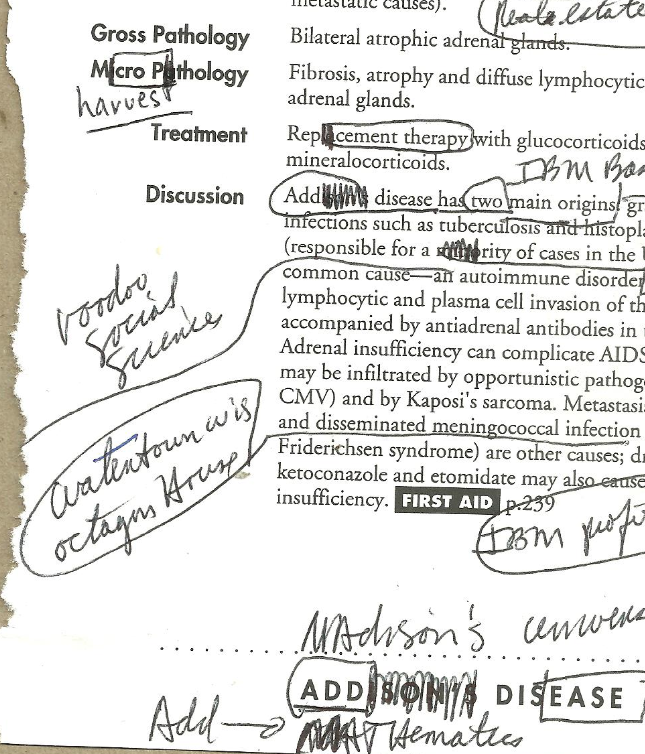 metastatic causes).
Real estate
Gross Pathology Bilateral atrophic adrenal glands.
Micro Pathology Fibrosis, atrophy and diffuse lymphocytic
harvest
adrenal glands.
Treatment Replacement therapy with glucocorticoids
mineralocorticoids.
IBM
Discussion Addison's disease has two main origins: gr
infections such as tuberculosis and histopla
(responsible for a ority of cases in the
common cause—an autoimmune disorder
lymphocytic and plasma cell invasion of th
accompanied by antiadrenal antibodies in
Adrenal insufficiency can complicate AIDS
may be infiltrated by opportunistic pathoge
CMV) and by Kaposi's sarcoma. Metastasi
and disseminated meningococcal infection
Friderichsen syndrome) are other causes; dr
ketoconazole and etomidate may also cause
insufficiency. FIRST AID p.239
voodoo
social
sciences
watertown wis
octagon House
IBM profi
Madison's
ADDISON'S DISEASE
Add → MATHematics